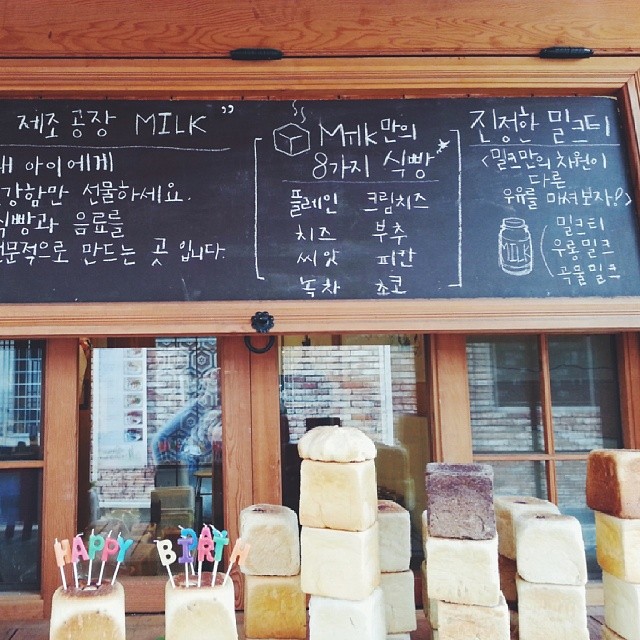 제조공장 MILK”
아이에게
강함만 선물하세요.
식빵과 음료를
문적으로 만드는 곳 입니다.
Milk만의
8가지 식빵
플레인 크림치즈
치즈 부추
씨앗 피칸
녹차 초코
진정한 밀크티
<밀크만의 차원이
다른
우유를 마셔보자!>
MILK
밀크티
우롱밀크
곡물밀크
HAPPY BIRTH